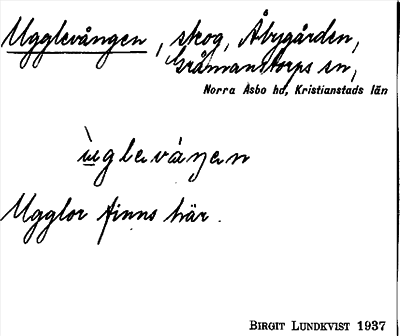 Ugglevången, skog, Åbygården,
Gråmanstorps sn,
Norra Åsbo hd, Kristianstads län
ùglevåŋen
Ugglor finns här.
BIRGIT LUNDKVIST 1937